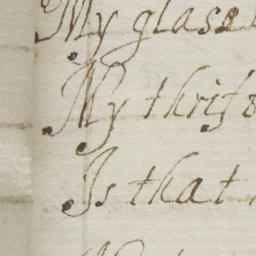 My glass
My thrift
Is that